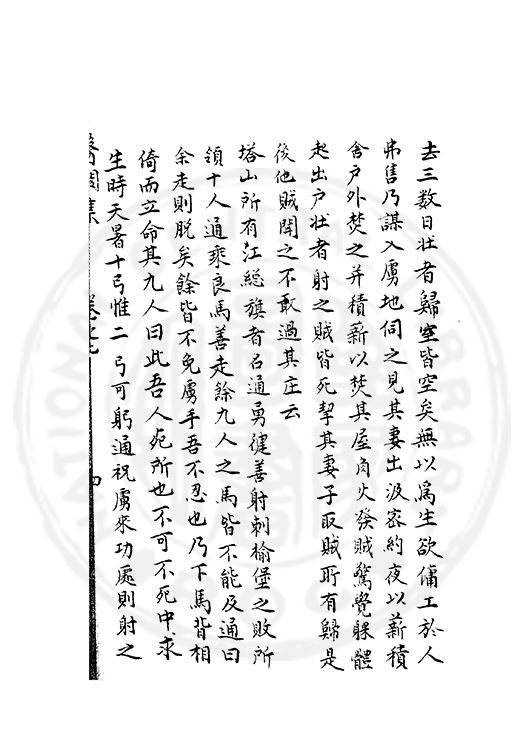 去三数日壮者歸室皆空矣無以爲生欲傭工於人
弗售乃謀入虜地伺之見其妻出汲密約夜以薪積
舍户外焚之并積薪以焚其屋肉火發賊驚覺躶體
起出户壮者射之賊皆死挈其妻子取賊所有歸是
後他賊聞之不敢過其庄云
塔山所有江総旗者名通勇健善射刺榆堡之敗所
領十人通乘良馬善走餘九人之馬皆不能及通曰
余走則脱矣餘皆不免虜手吾不忍也乃下馬背相
倚而立命其九人曰此吾人死所也不可不死中求
生時天暑十弓惟二弓可彀通視虜來功處則射之
醫閭集 卷之七 四